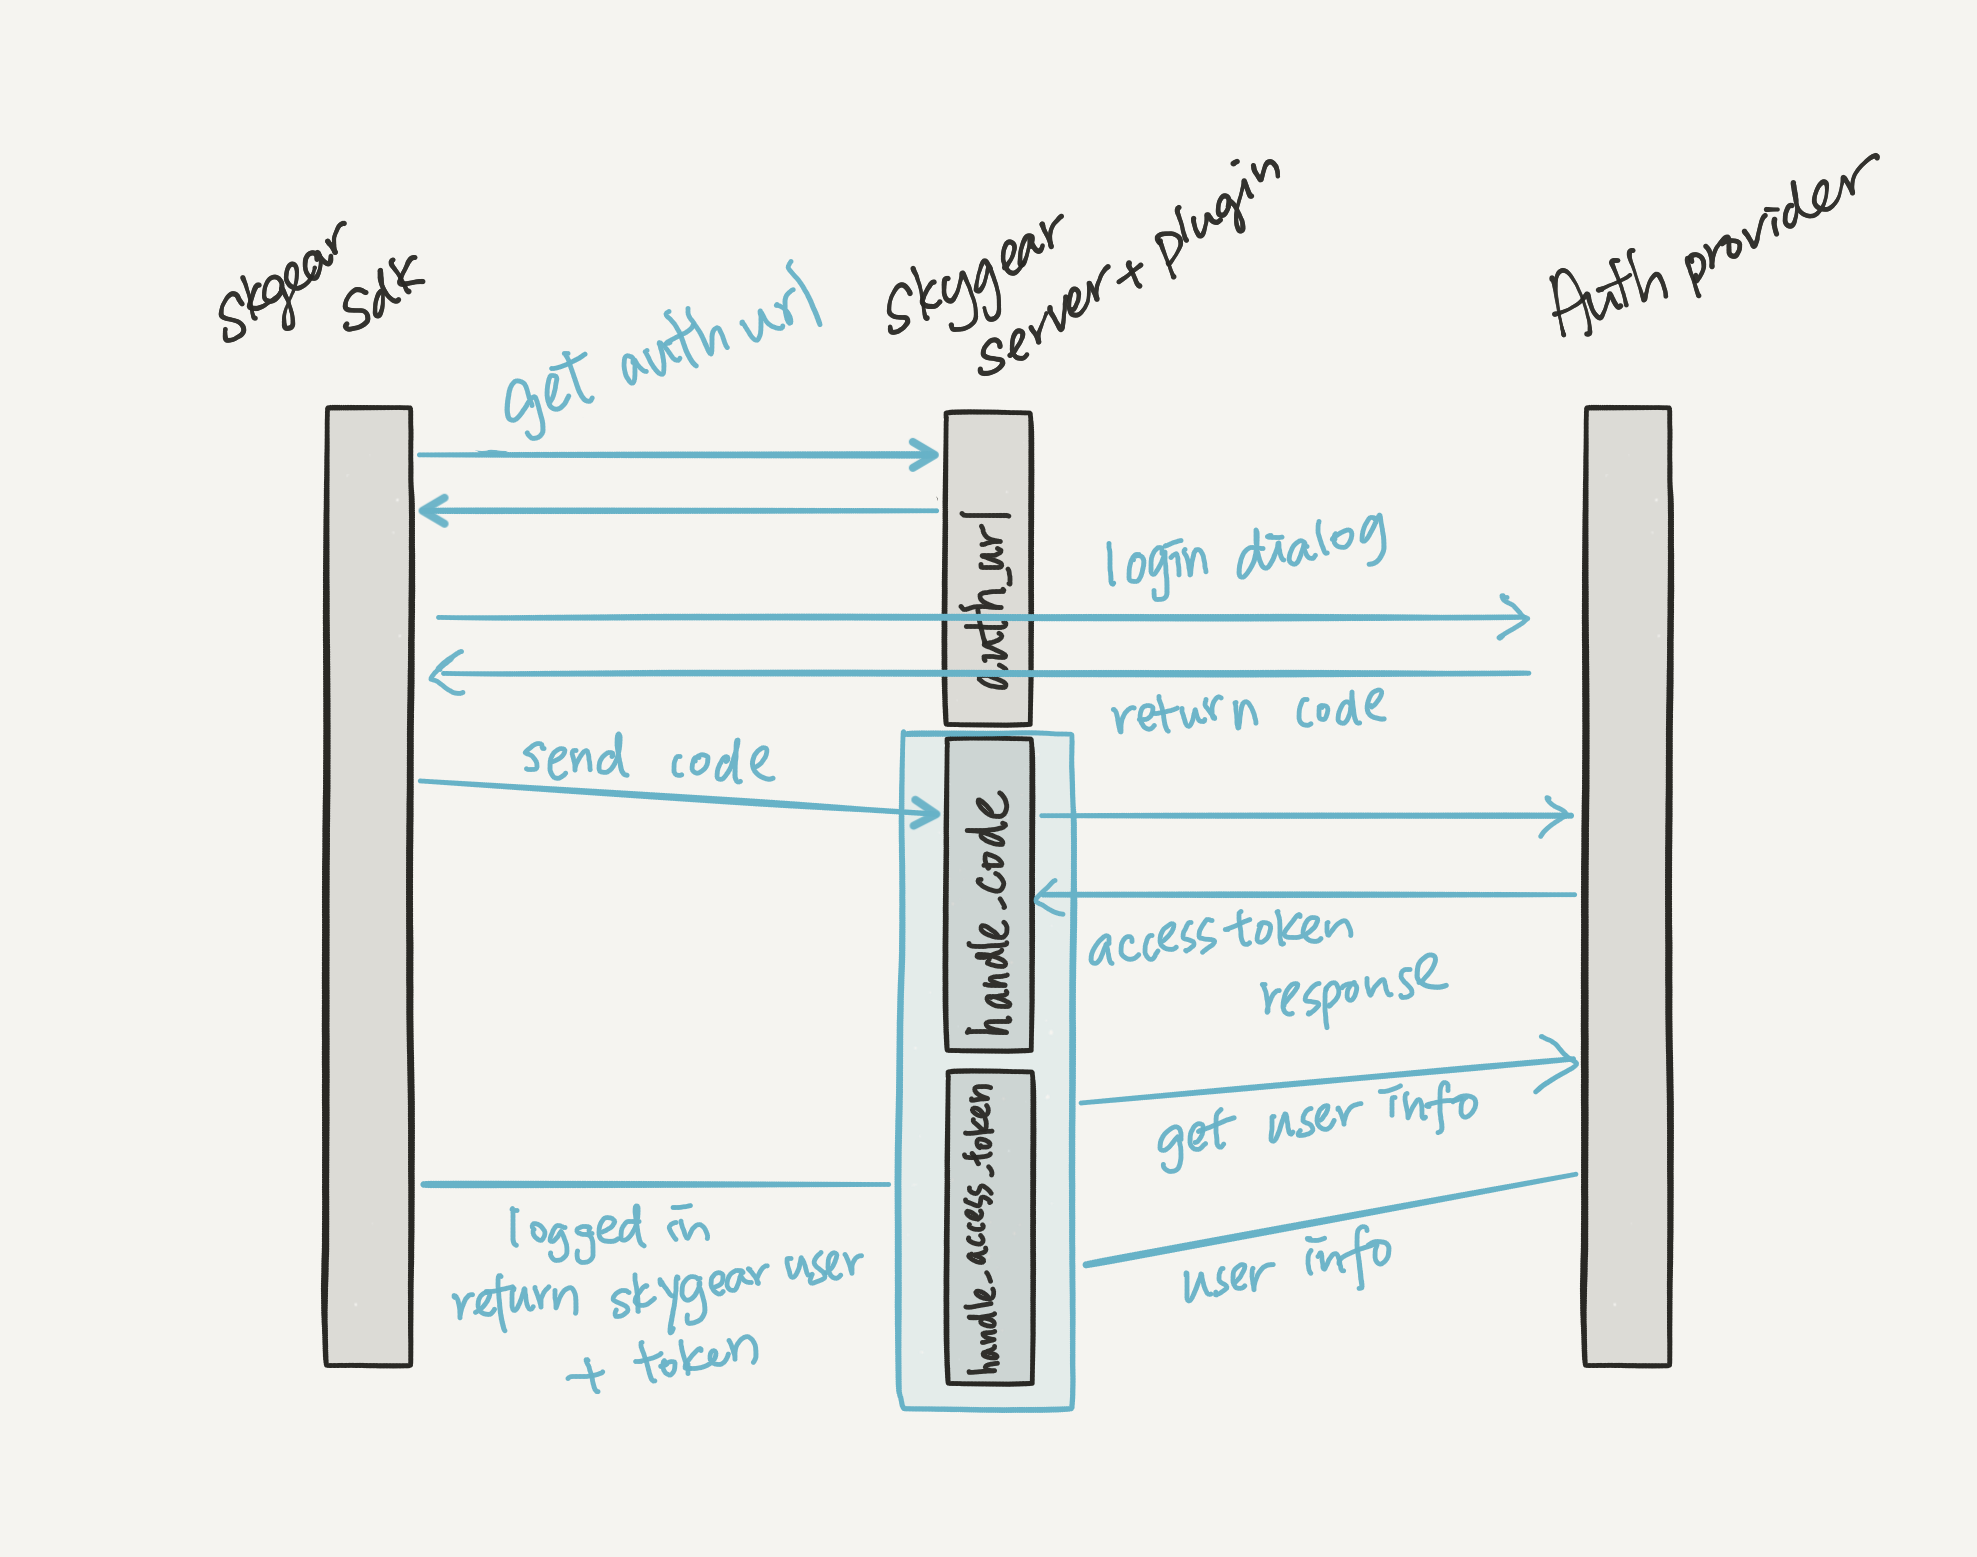 skgear
sdk
skygear
server + plugin
Auth provider
get auth url
auth_url
login dialog
return code
send code
handle_code
access token
response
get user info
handle_access_token
user info
logged in
return skygear user
+ token